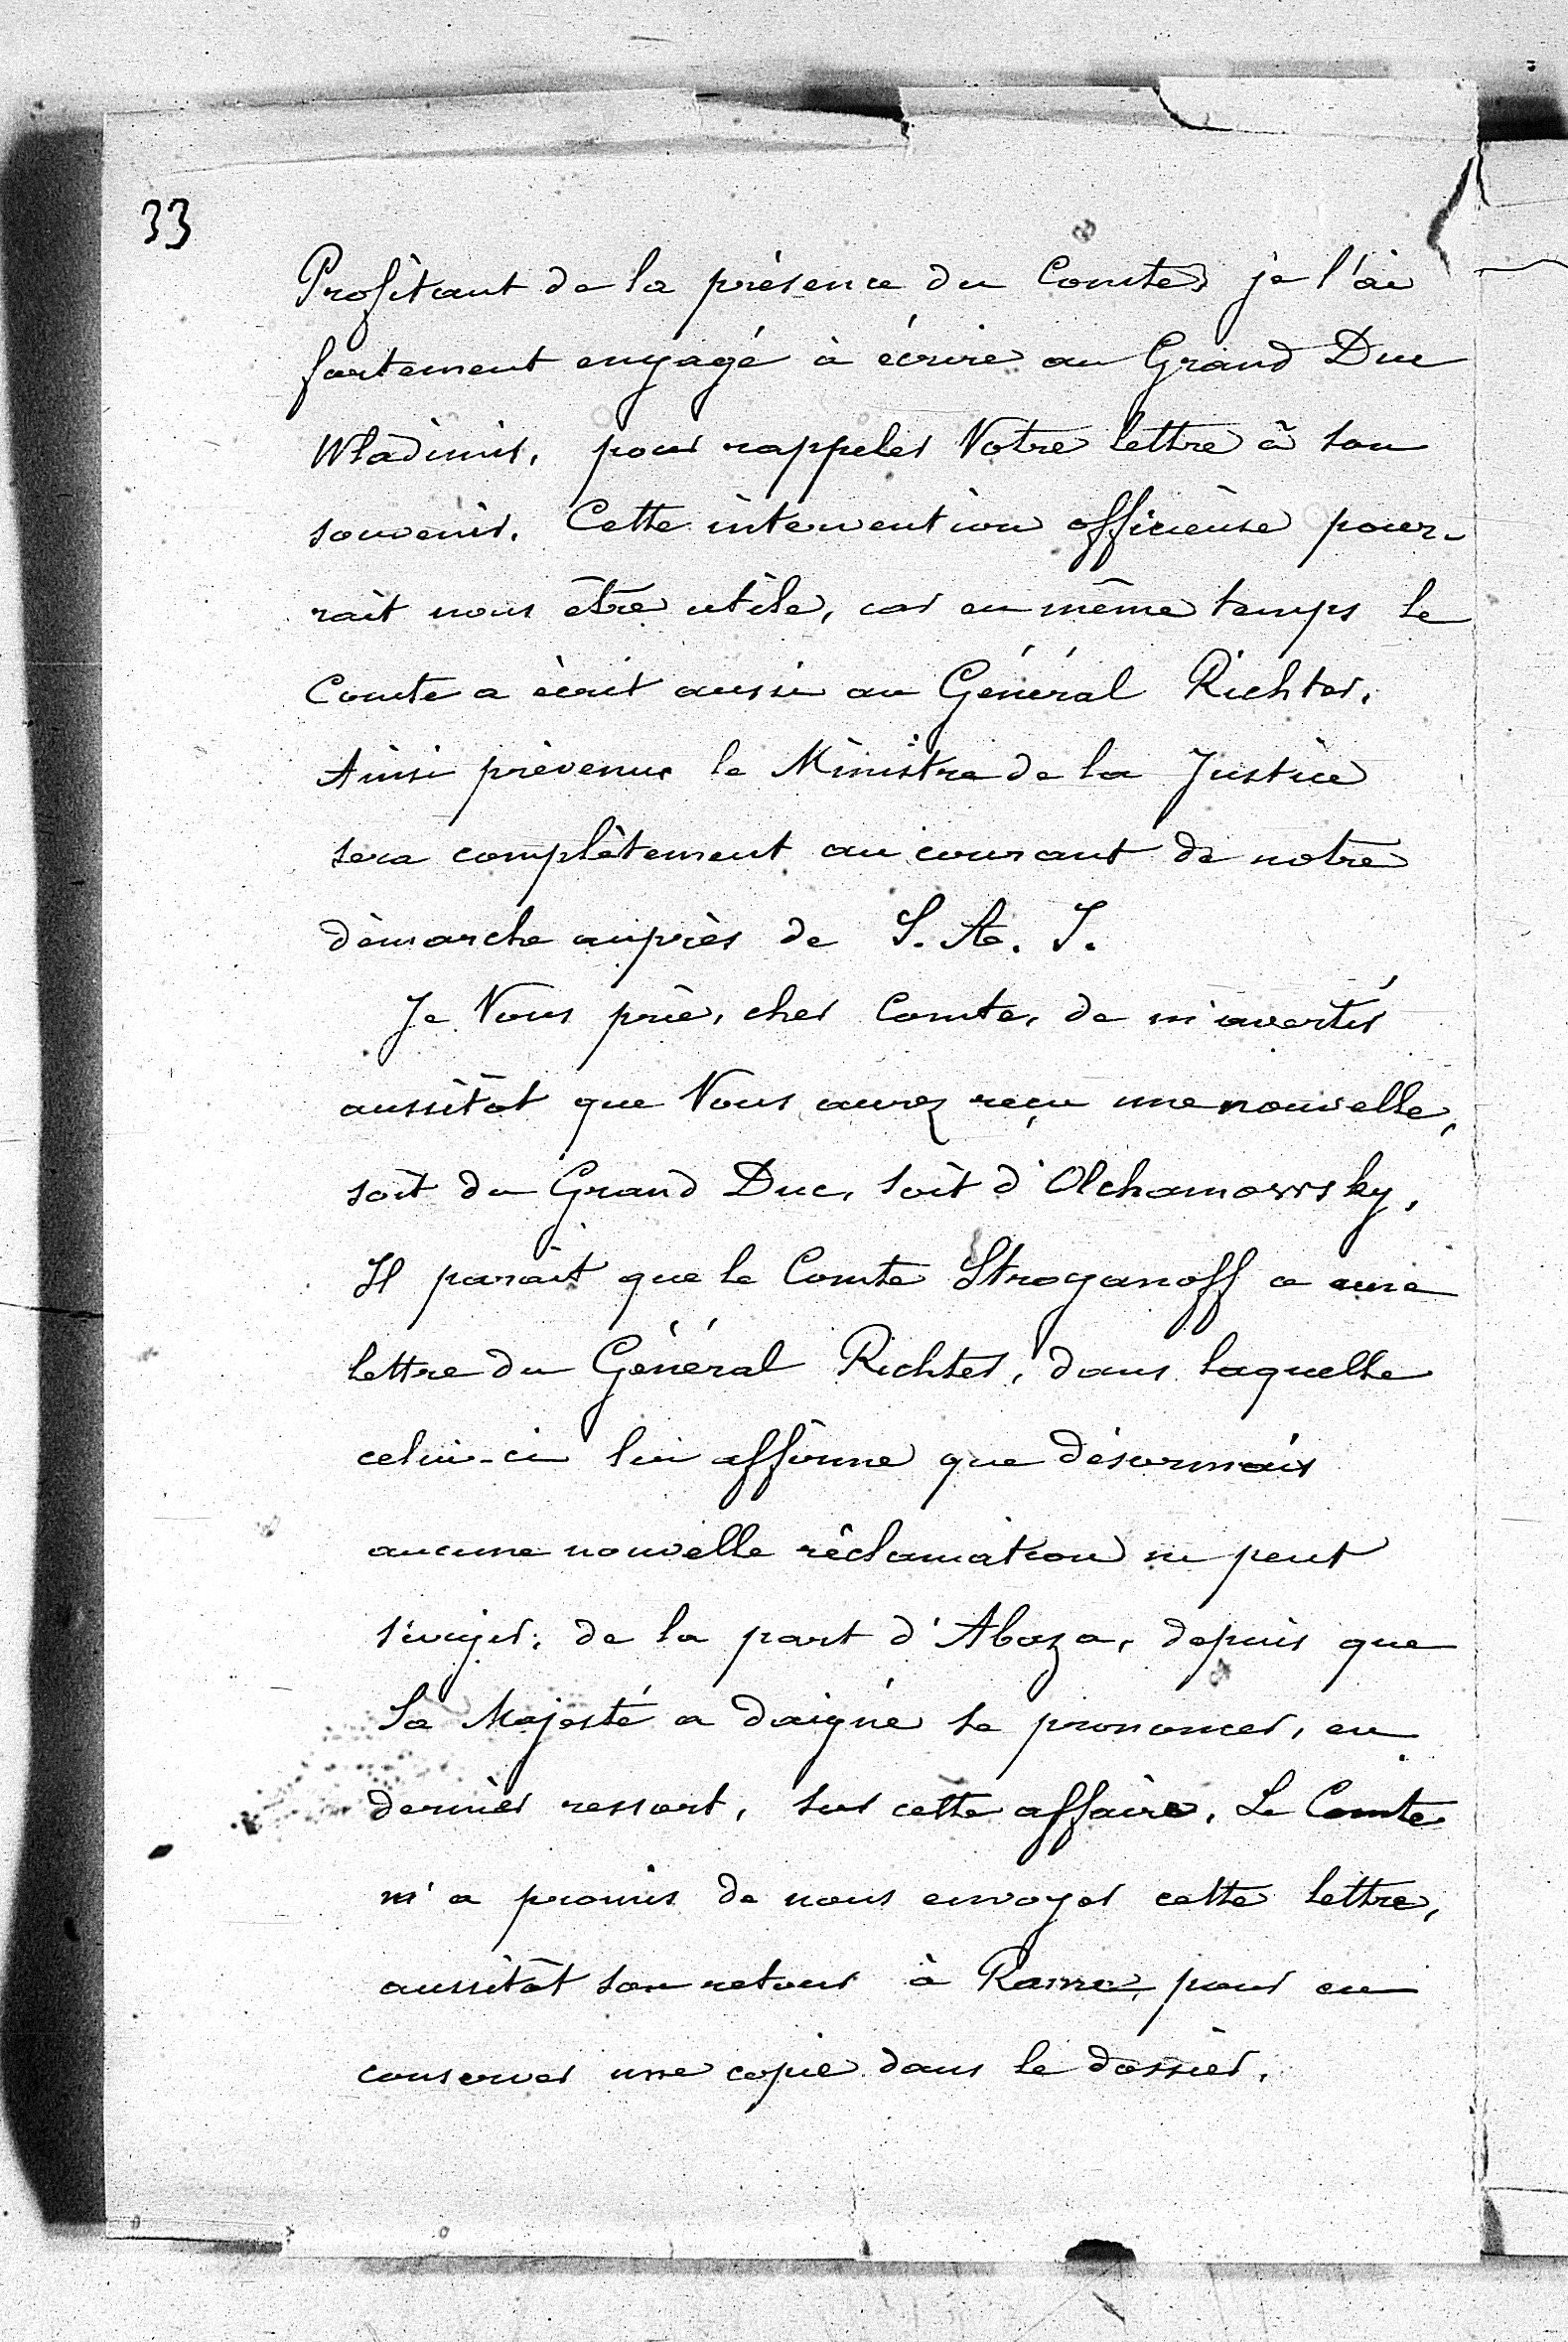 33
Profitant de la présence du Comte je l'ai
fortement engagé à écrire au Grand Duc
Wladimir, pour rappeler Votre lettre à son
souvenir. Cette intervention officieuse pour-
rait nous être utile, car en même temps le
Comte a écrit aussi au Général Richter.
Ainsi prévenu le Ministre de la Justice
sera complètement au courant de notre
démarche auprès de S. A. I.
Je Vous prie, cher Comte, de m'avertir
aussitôt que Vous aurez reçu une nouvelle,
soit du Grand Duc, soit d'Olchamowsky.
Il parait que le Comte Stroganoff a une
lettre du Général Richter, dans laquelle
celui-ci lui affirme que désormais
aucune nouvelle réclamation ne peut
de la part d'Abaza, depuis que
Sa Majesté a daigné se prononcer, en
dernier ressort, sur cette affaire. Le Comte
m'a promis de nous envoyer cette lettre,
aussitôt son retour à Rome, pour en
conserver une copie dans le dossier.